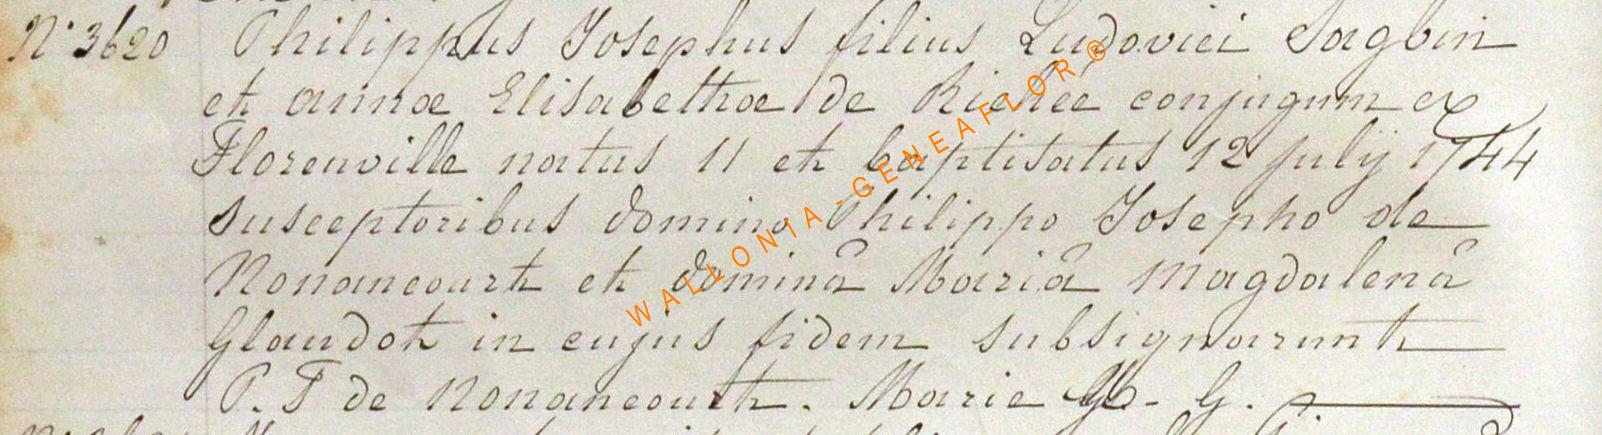 N° 3620 Philippus Josephus filius Ludovici Sagbin
et annæ Elisabethæ de Riehée conjugum ex
Florenville natus 11 et baptisatus 12 julij 1744
susceptoribus domino Philippo Josepho de
Nonancourt et dominâ Mariâ Magdalenâ
Glaudot in cujus fidem subsignarunt
P. J de Nonancourt. Marie M. G.
WALLONIA-GENEAFLOR®